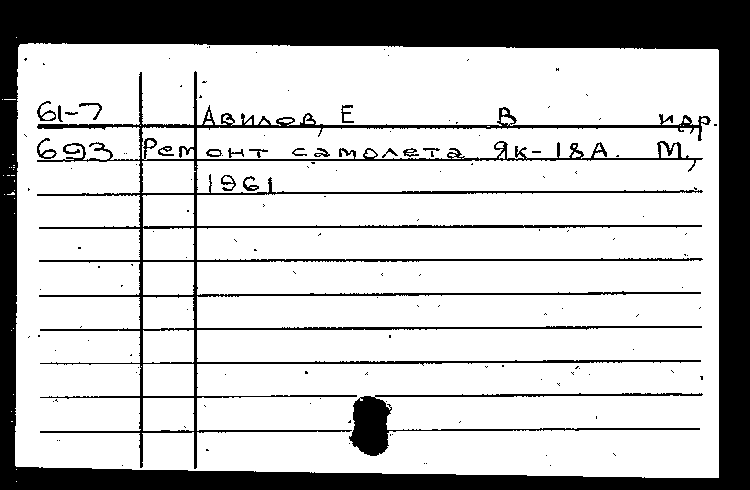 61-7 Авилов, Е В и др.
693 Ремонт самолета Як-18А. М.,
1961